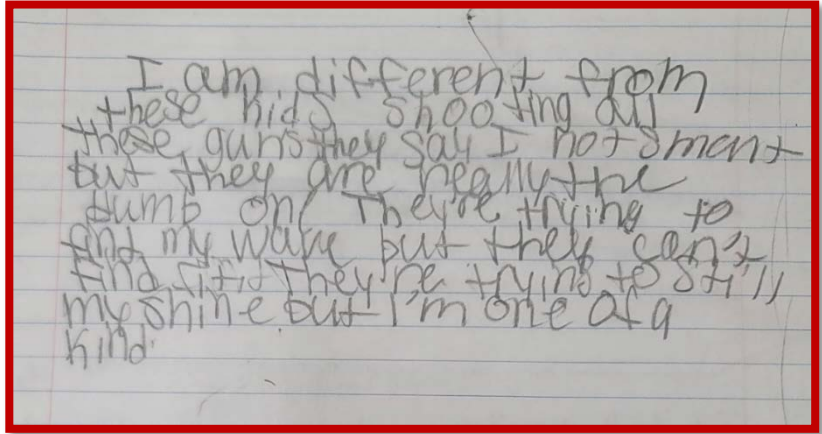 I am different from
these kids shooting all
these guns they say I not smart
but they are really the
dumb on( They're trying to
find my wave but they can't
find it they're trying to still
my shine but I'm one of a
kind.